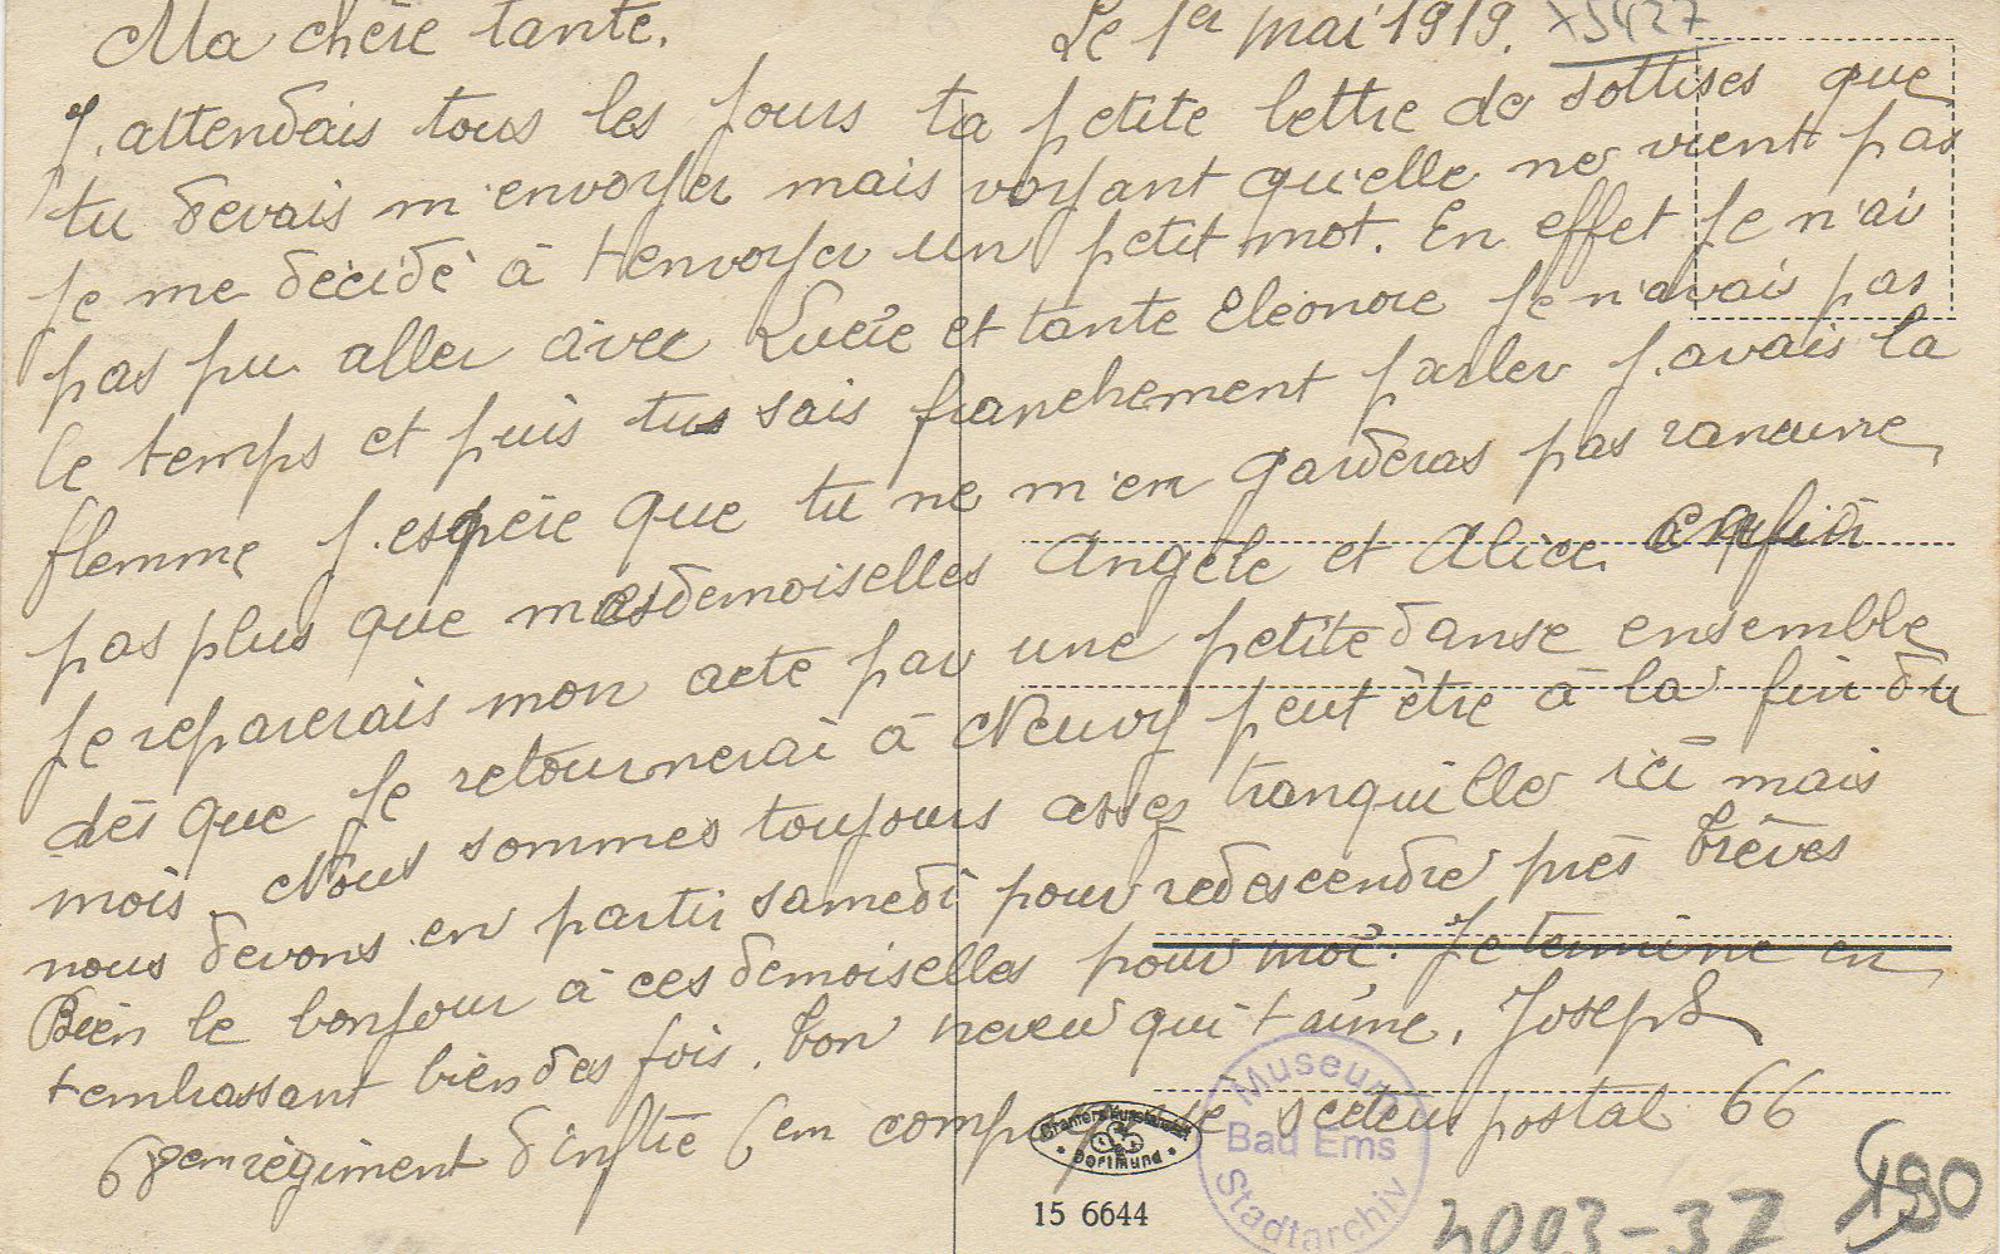 Ma chère tante. Le 1er mai 1919. X5427
J. attendais tous les jours ta petite lettre de sottises que
tu devais m'envoyer mais voyant qu'elle ne vient pas
je me décidé à t'envoyer un petit mot. En effet je n'ai
pas pu aller avec Lucie et tante Eléonore je n'avais pas
le temps et puis tu sais franchement parler j.avais la
flemme j.espère que tu ne m'en garderas pas rancune
pas plus que mesdemoiselles Angèle et Alice. enfin
je reparerais mon acte par une petite danse ensemble
dès que je retournerai à Neuvy peut être à la fin du
mois. Nous sommes toujours assez tranquille ici mais
nous devons en partir samedi pour redescendre près Trèves
Bien le bonjour à ces demoiselles pour moi. Je termine en
t embrassant bien des fois. ton neveu qui t aime. Joseph
68em règiment d'inftie 6em compagnie secteur postal 66
Cramers Kunstanstalt
Dortmund
15 6644
Museum
Bad Ems
Stadtarchiv
2003-37
190